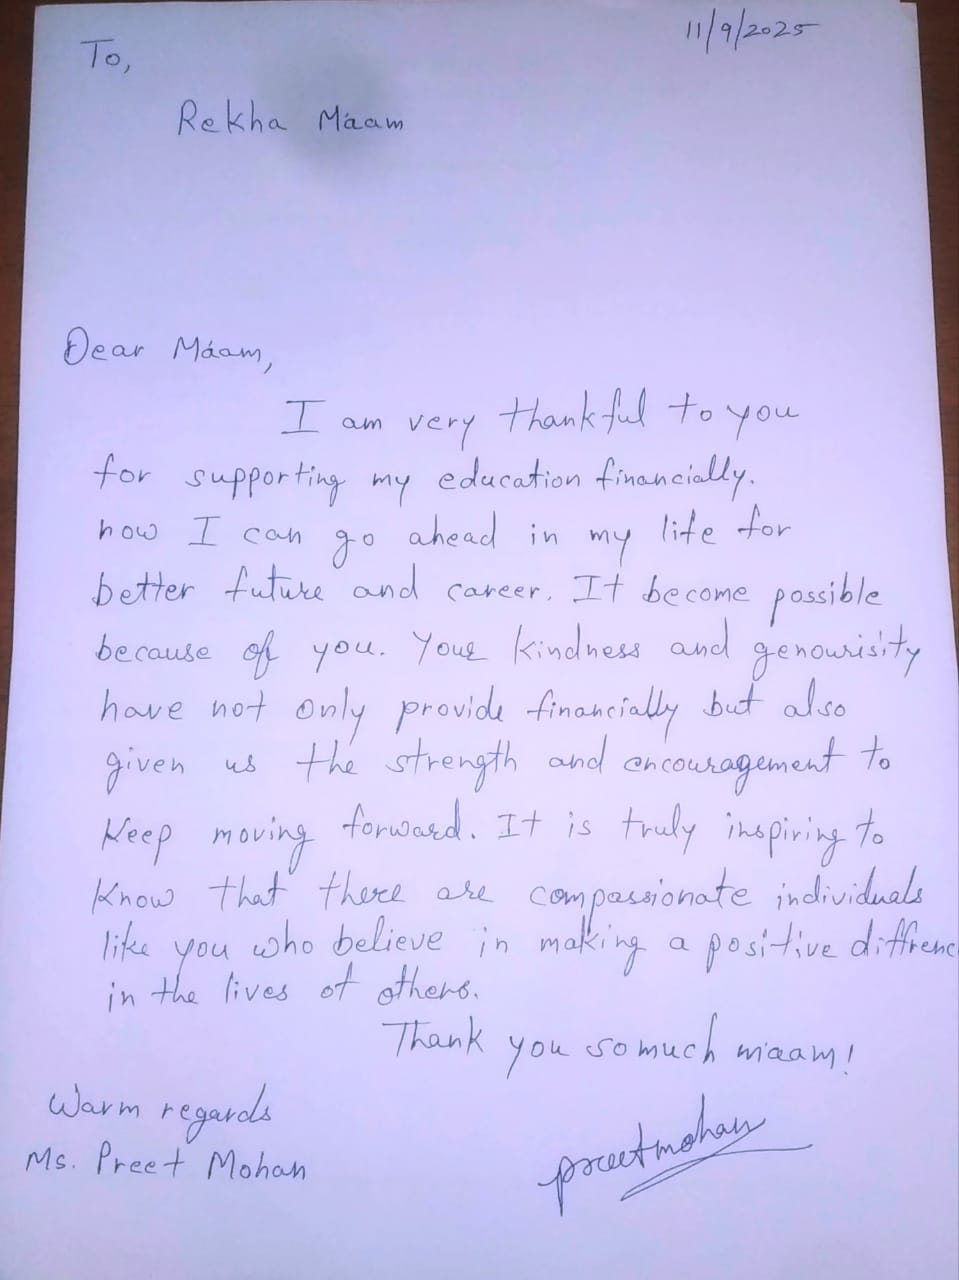 11/9/2025
To,
Rekha Máam
Dear Máam,
I am very thankful to you
for supporting my education financially.
now I can go ahead in my life for
better future and career. It become possible
because of you. Your kindness and genourisity
have not only provide financially but also
given us the strength and encouragement to
Keep moving forward. It is truly inspiring to
Know that there are compassionate individuals
like you who believe in making a positive diffrenc
in the lives of others.
Thank you so much máam!
Warm regards
Ms. Preet Mohan
preetmohan